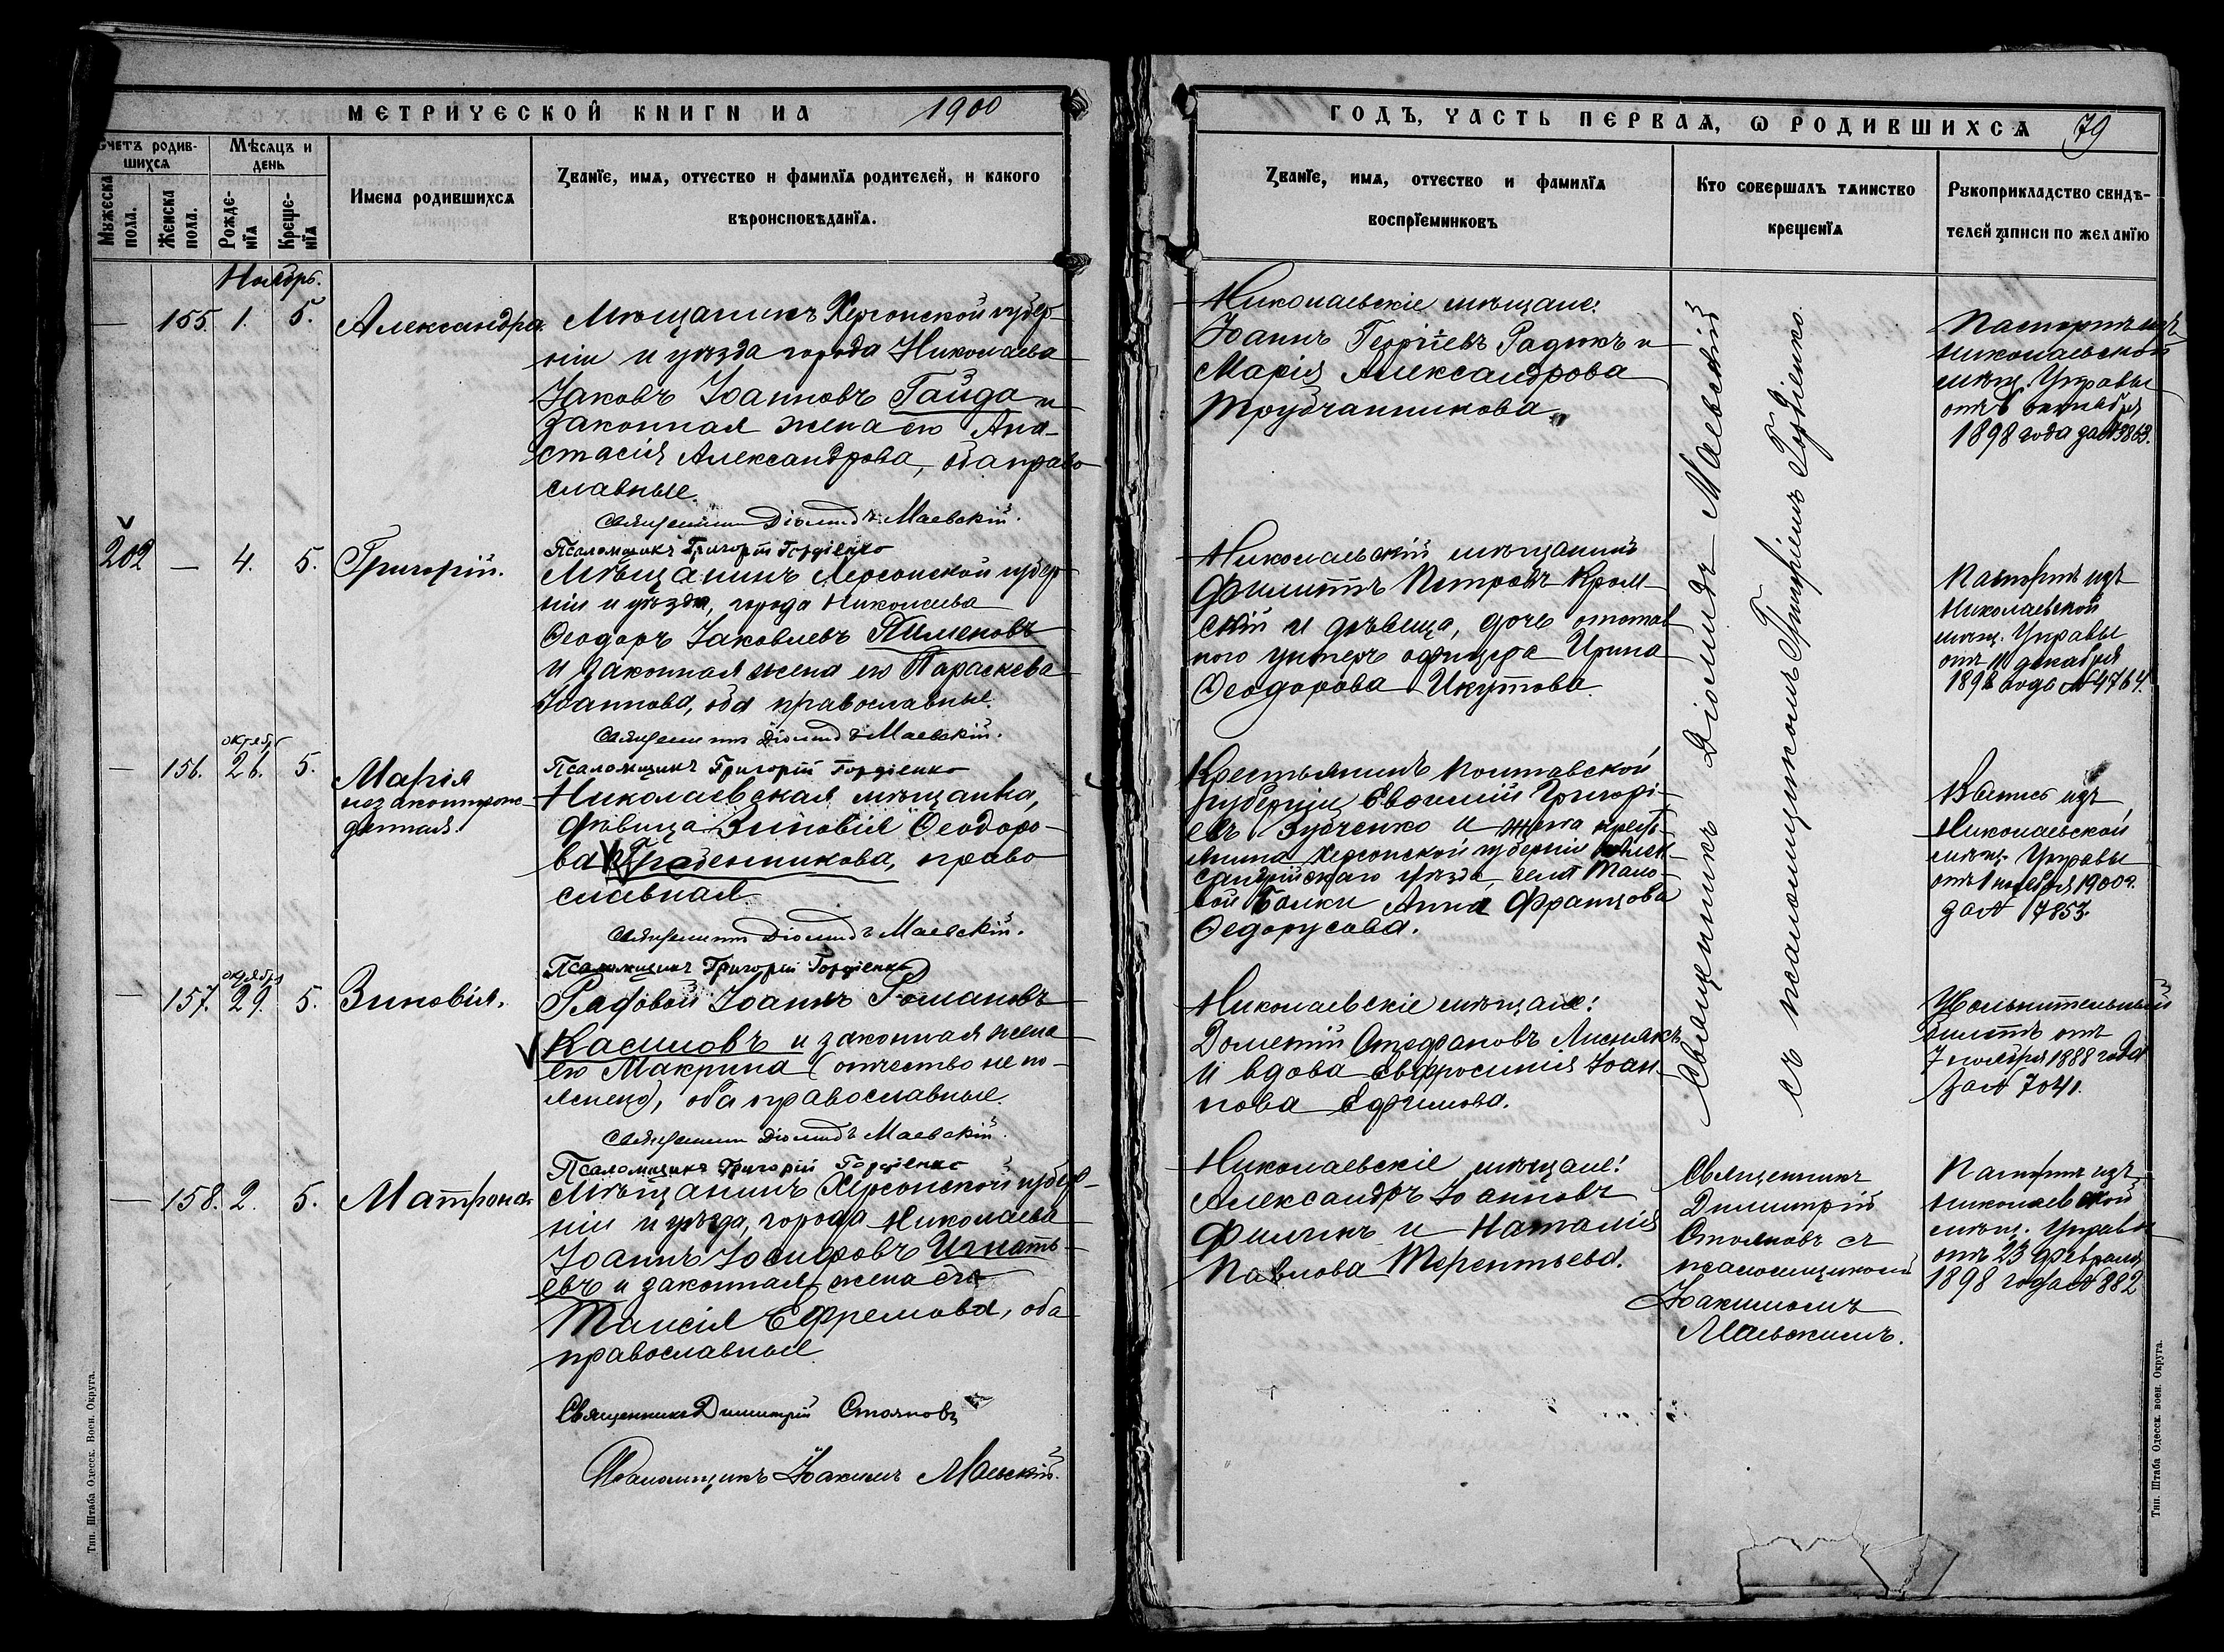 МЕТРИЧЕСКОЙ КНИГИ НА 1900
Счетъ родившихся
Мѣсяцъ и день
Мужеска пола.
Женска пола.
Рожденія
Крещенія
Имена родившихся
Званіе, имя, отчество и фамилія родителей, и какого
вѣроисповѣданія.
Ноябрь.
— 155. 1. 5. Александра.
Мѣщанинъ Херсонской губер-
ніи и уѣзда города Николаева
Іаковъ Іоанновъ Гайда и
законная жена его Ана-
стасія Александрова, оба право
славные.
Священникъ Діомидъ Маевскій.
Псаломщикъ Григорій Гордіенко
202 — 4. 5. Григорій.
Мѣщанинъ Херсонской губер
ніи и уѣзда, города Николаева
Ѳеодоръ Іаковлевъ Пименовъ
и законная жена его Параскева
Іоаннова, оба православные.
Священникъ Діомидъ Маевскій.
Псаломщикъ Григорій Гордіенко
— 156. октября 26. 5. Марія
незаконнорож-
денная.
Николаевская мѣщанка,
дѣвица Зиновія Ѳеодоро-
ва Гребенникова, право
славная.
Священникъ Діомидъ Маевскій.
Псаломщикъ Григорій Гордіенко
— 157. октября 29. 5. Зиновія.
Рядовой Іоаннъ Романовъ
Касимовъ и законная жена
его Макрина (отчество не по-
яснено), оба православные.
Священникъ Діомидъ Маевскій.
Псаломщикъ Григорій Гордіенко
— 158. 2. 5. Матрона.
Мѣщанинъ Херсонской губер-
ніи и уѣзда, города Николаева
Іоаннъ Іосифовъ Игнать-
евъ и законная жена его
Таисія Ефремова, оба
православные
Священникъ Димитрій Стояновъ
Псаломщикъ Іоакимъ Маевскій.
Тип. Штаба Одесск. Воен. Округа.
ГОДЪ, ЧАСТЬ ПЕРВАЯ, О РОДИВШИХСЯ 79
Званіе, имя, отчество и фамилія
воспріемниковъ
Кто совершалъ таинство
крещенія
Рукоприкладство свидѣ-
телей записи по желанію
Николаевскіе мѣщане:
Іоаннъ Георгіевъ Радюкъ и
Марія Александрова
Трубчанникова.
Николаевскій мѣщанинъ
Филиппъ Петровъ Кром-
скій и дѣвица, дочь отстав
ного унтеръ офицера Ирина
Ѳеодорова Икутова.
Крестьянинъ Полтавской
губерніи Евѳимій Григорі-
евъ Зубченко и жена кресть-
янина Херсонской губерніи Алек-
сандрійскаго уѣзда, села
вой Балки Анна Францова
Ѳедорусова.
Николаевскіе мѣщане:
Дометій Стефановъ Лиснякъ
и вдова Евфросинія Іоан-
нова Ефимова.
Николаевскіе мѣщане:
Александръ Іоанновъ
Филикъ и Наталія
Павлова Терентьева.
Священникъ Діомидъ Маевскій
съ псаломщикомъ Григоріемъ Гордіенко.
Священникъ
Димитрій
Стояновъ съ
псаломщикомъ
Іоакимомъ
Маевскимъ.
Паспортъ изъ
Николаевской
мѣщ. Управы
отъ 6 октября
1898 года за № 3863.
Паспортъ изъ
Николаевской
мѣщ. Управы
отъ 11 декабря
1898 года № 4764.
изъ
Николаевской
мѣщ. Управы
отъ 1 ноября 1900 г.
за № 17853.
Увольнительный
билетъ отъ
7 ноября 1888 года
за № 7041.
Паспортъ изъ
Николаевской
мѣщ. Управы
отъ 23 февраля
1898 года № 882
Тип. Штаба Одесск. воен. Округа.